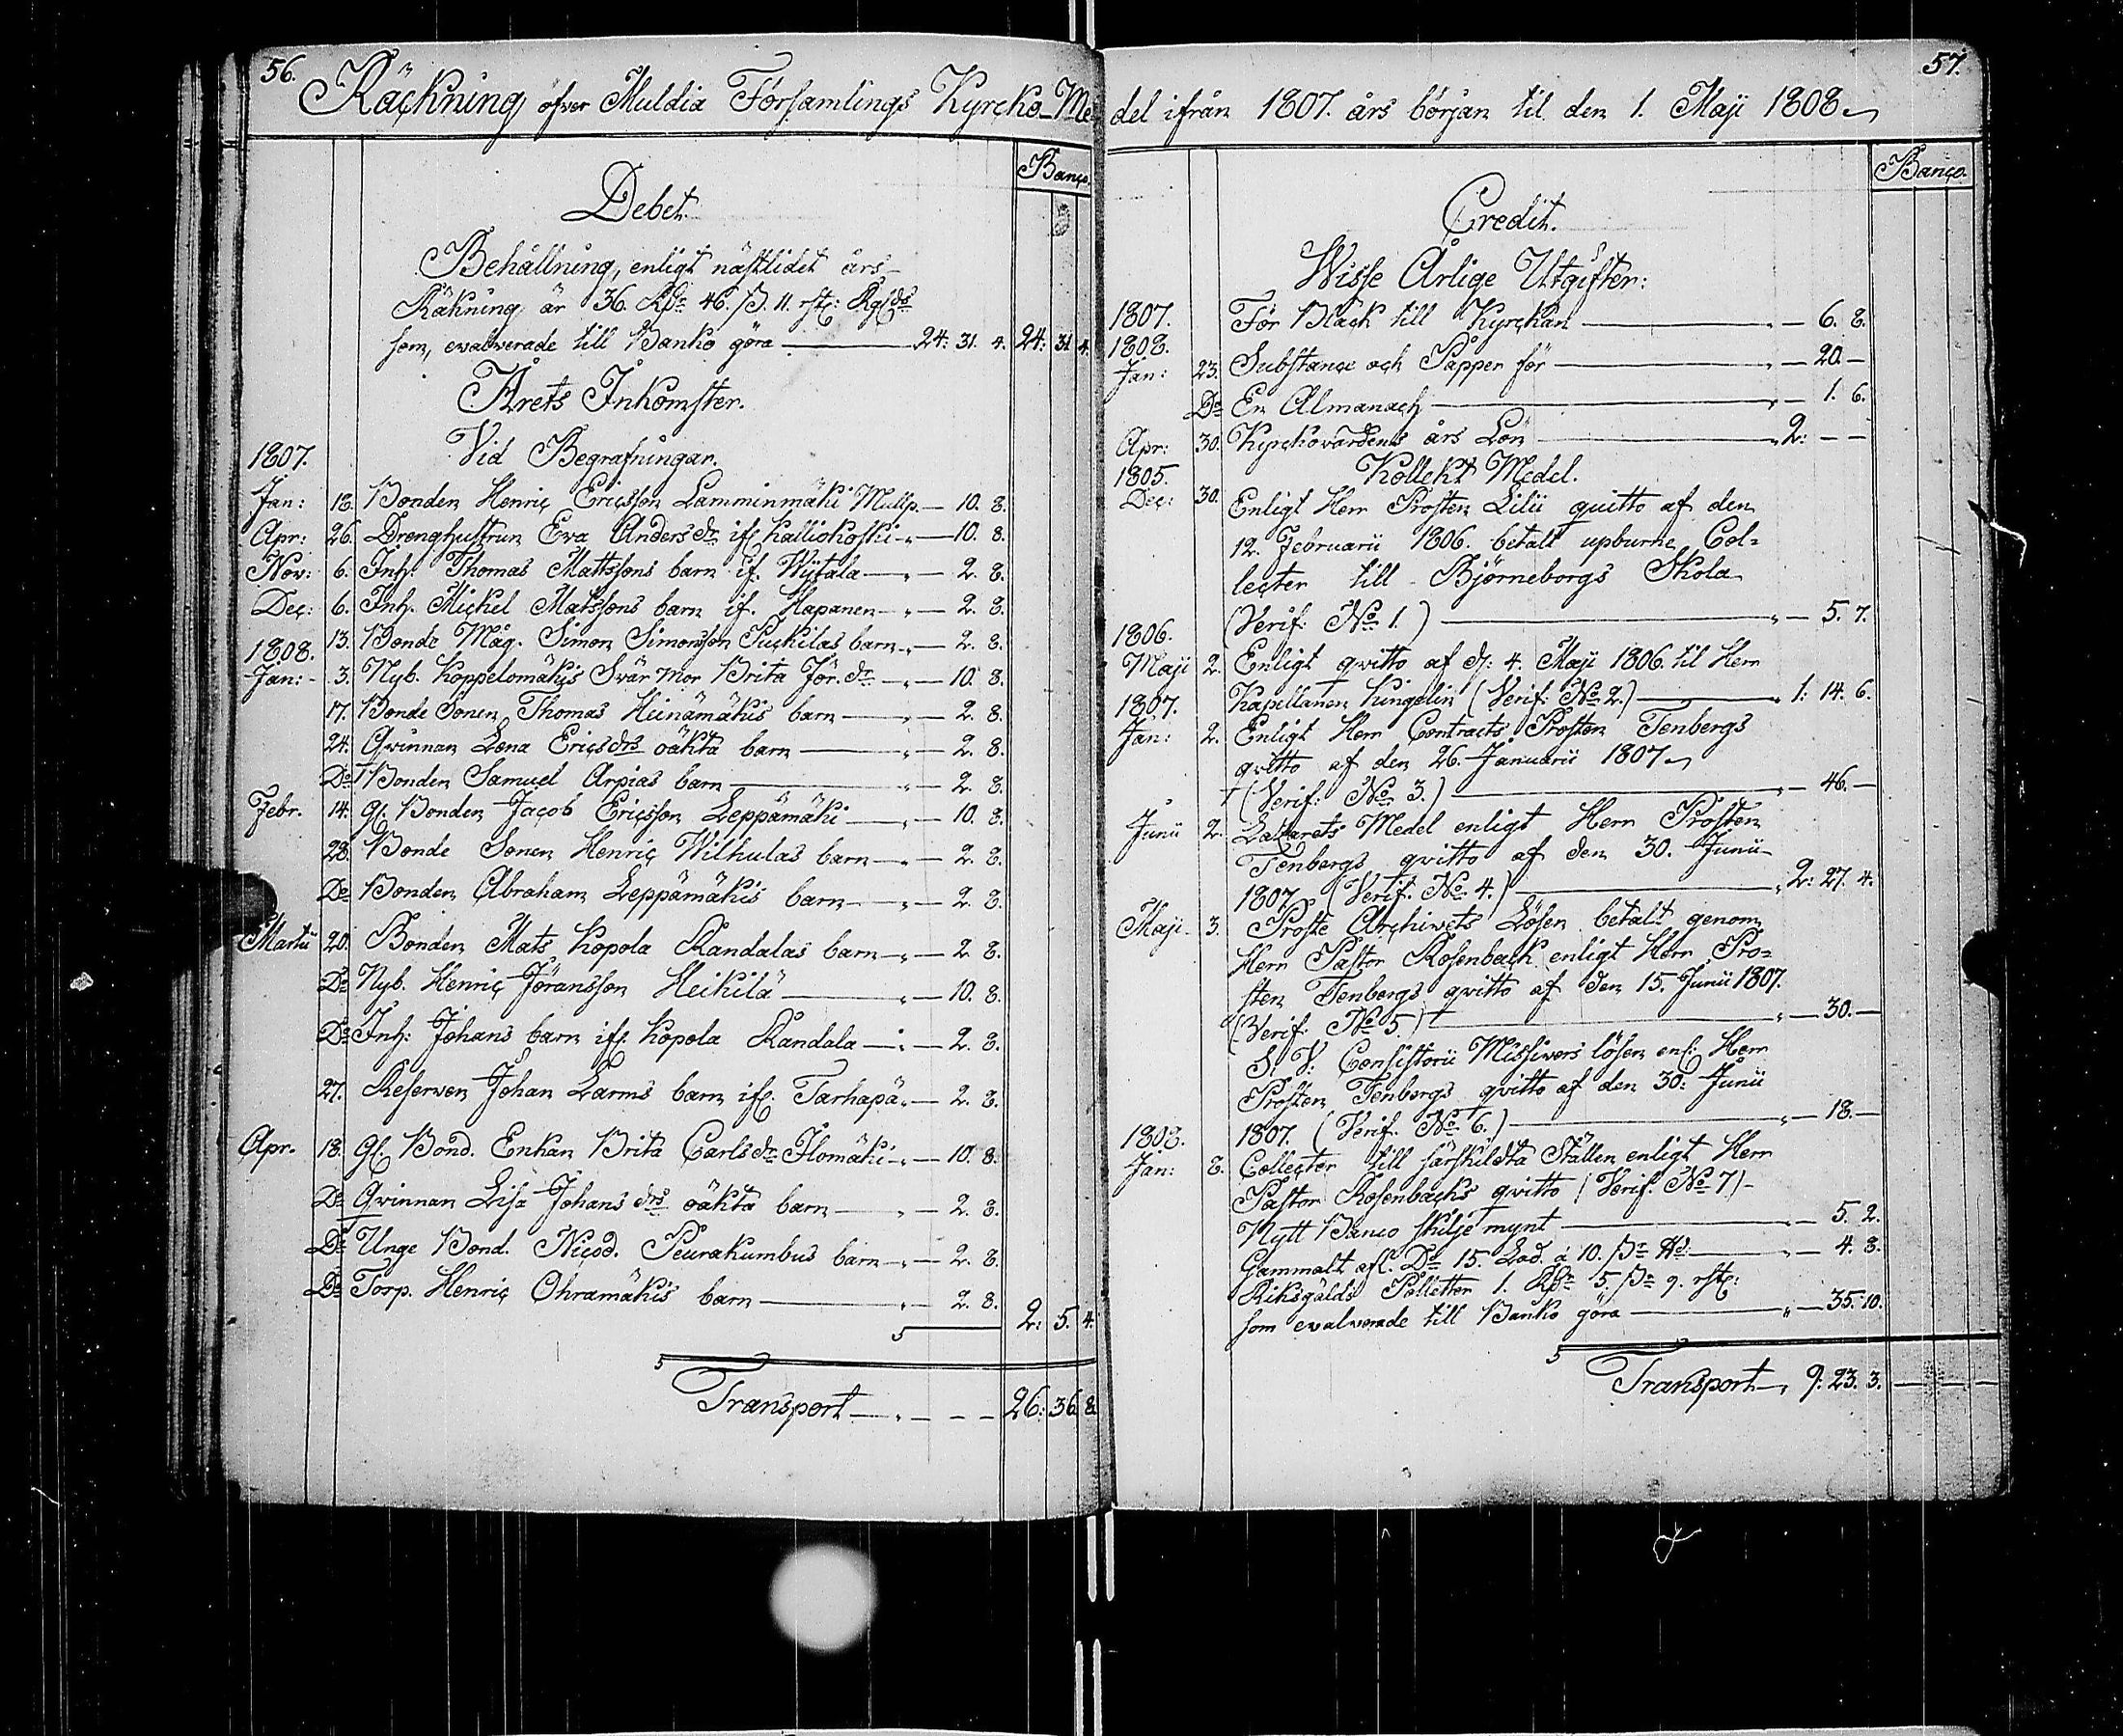 56.
Räckning öfver Muldia Församlings Kyrcko-Me
Banço.
Debet.
Behållning, enligt nästlidet års
Räkning är 36. Rdr 46. ß. 11. rst: Rgds
som, evalverade till Banko göra 24: 31. 4. 24: 31 4.
Årets Inkomster.
1807. Vid Begrafningar.
Jan: 18. Bonden Henriç Ericsson Lamminmäki Mullp. — 10. 8.
Apr: 26. Drenghustrun Eva Anders dr if. Kalliokoski — 10. 8.
Nov: 6. Inh: Thomas Mattssons barn if. Wijtala — 2. 8.
Dec: 6. Inh. Mickel Matssons barn if. Hapanen — 2. 8.
13. Bonde Måg. Simon Simonsson Puckilas barn — 2. 8.
1808.
Jan: 3. Nyb. Koppelomäkis Svär mor Brita Jör. dr — 10. 8.
17. Bonde Sonen Thomas Heinämäkis barn — 2. 8.
24. Qvinnan Lena Ericsdrs oäkta barn — 2. 8.
Do Bonden Samuel Arpias barn — 2. 8.
Febr. 14. Gl. Bonden Jacob Ericsson Leppämäki — 10. 8.
28. Bonde Sonen Henriç Wilhulas barn — 2. 8.
Do Bonden Abraham Leppämäkis barn — 2. 8.
Martii 20. Bonden Mats Kopola Randalas barn — 2. 8.
Do Nyb. Henriç Jöransson Heikilä — 10. 8.
Do Inh: Johans barn if. Kopola Randala — 2. 8.
27. Reserven Johan Larms barn if. Tarhapä — 2. 8.
Apr. 18. Gl. Bond. Enkan Brita Carls dr Ilomäki — 10. 8.
Do Qvinnan Lisa Johans drs oäkta barn — 2. 8.
Do Unge Bond. Nicod. Peurakumbus barn — 2. 8.
Do Torp. Henriç Ohramäkis barn — 2. 8.
2: 5. 4.
Transport — 26: 36 8.
57.
del ifrån 1807. års början til den 1. Maji 1808.
Banço.
Credit.
Wisse Årlige Utgifter:
1807. För Bläck till Kyrckan — 6. 8.
1808.
Jan: 23. Substance och Papper för — 20. —
Do En Almanach — 1. 6.
Apr: 30. Kyrckovärdens års Lön — 2: — —
1805. Kollekt Medel.
Dec: 30. Enligt Herr Prosten Lilii quitto af den
12. Februarii 1806. betalt upburne Col-
lecter till Björneborgs Skola
(Verif: No 1.) — 5. 7.
1806.
Maji 2. Enligt qvitto af d: 4. Maji 1806. til Herr
Kapellanen Kingelin (Verif: No 2.) — 1: 14. 6.
1807.
Jan: 2. Enligt Herr Contracts Prosten Tenbergs
qvitto af den 26. Januarii 1807
(Verif: No 3.) — 46. —
Junii 2. Lazarets Medel enligt Herr Prosten
Tenbergs qvitto af den 30. Junii
1807 (Verif: No 4.) — 2: 27. 4.
Maji 3. Proste Archivets Lösen betalt genom
Herr Pastor Rosenback enligt Herr Pro-
sten Tenbergs qvitto af den 15. Junii 1807.
(Verif: No 5.) — 30. —
S. V: Consistorii Missivers lösen enl: Herr
Prosten Tenbergs qvitto af den 30: Junii
1807. (Verif: No 6.) — 18. —
1808.
Jan: 8. Collecter till särskildta Ställen enligt Herr
Pastor Rosenbacks qvitto (Verif. No 7)
Nytt Banco skilje mynt — 5. 2.
Gammalt afl. Do 15. Lod. à 10. ßr — 4. 8.
Riksgälds Polletter 1. Rdr 5 ßr 9. rst:
som evalverade till Banko göra — 35. 10.
Transport — 9: 23. 3.